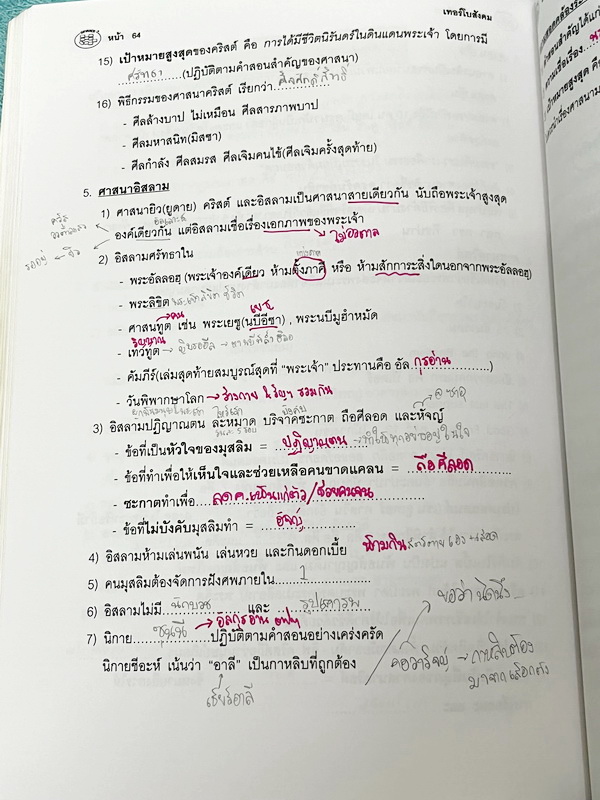 หน้า 64
เทอร์โบสังคม
15) เป้าหมายสูงสุดของคริสต์ คือ การได้มีชีวิตนิรันดร์ในดินแดนพระเจ้า โดยการมี
ศรัทธา (ปฏิบัติตามคำสอนสำคัญของศาสนา)
16) พิธีกรรมของศาสนาคริสต์ เรียกว่า ศีลศักดิ์สิทธิ์
- ศีลล้างบาป ไม่เหมือน ศีลสารภาพบาป
- ศีลมหาสนิท(มิสซา)
- ศีลกำลัง ศีลสมรส ศีลเจิมคนไข้(ศีลเจิมครั้งสุดท้าย)
5. ศาสนาอิสลาม
1) ศาสนายิว(ยูดาย) คริสต์ และอิสลามเป็นศาสนาสายเดียวกัน นับถือพระเจ้าสูงสุด
องค์เดียวกัน แต่อิสลามเชื่อเรื่องเอกภาพของพระเจ้า
2) อิสลามศรัทธาใน
- พระอัลลอฮฺ (พระเจ้าองค์เดียว ห้ามตั้งภาคี หรือ ห้ามสักการะสิ่งใดนอกจากพระอัลลอฮฺ)
- พระลิขิต
- ศาสนทูต เช่น พระเยซู(นบีอีซา) , พระนบีมูฮำหมัด
เยซู
วิญญาณ
- เทวทูต
- คัมภีร์(เล่มสุดท้ายสมบูรณ์สุดที่ "พระเจ้า" ประทานคือ อัล กุรอ่าน )
- วันพิพากษาโลก → ร่างกาย วิญฯ รวมกัน
3) อิสลามปฏิญาณตน ละหมาด บริจาคซะกาต ถือศีลอด และหัจญ์
- ข้อที่เป็นหัวใจของมุสลิม = ปฏิญาณตน
- ข้อที่ทำเพื่อให้เห็นใจและช่วยเหลือคนขาดแคลน = ถือศีลอด
- ซะกาตทำเพื่อ ลดค.เห็นแก่ตัว/ช่วยคนจน
- ข้อที่ไม่บังคับมุสลิมทำ = ฮัจญ์
4) อิสลามห้ามเล่นพนัน เล่นหวย และกินดอกเบี้ย ห้ามกิน
5) คนมุสลิมต้องจัดการฝังศพภายใน 1
6) อิสลามไม่มี นักบวช และ รูปเคารพ
7) นิกาย ซุนนี ปฏิบัติตามคำสอนอย่างเคร่งครัด
อัลกุรอาน only
นิกายชีอะห์ เน้นว่า "อาลี" เป็นกาหลิบที่ถูกต้อง
คอวาริญ์ → กาหลิบต้อง
มาจากเลือกตั้ง